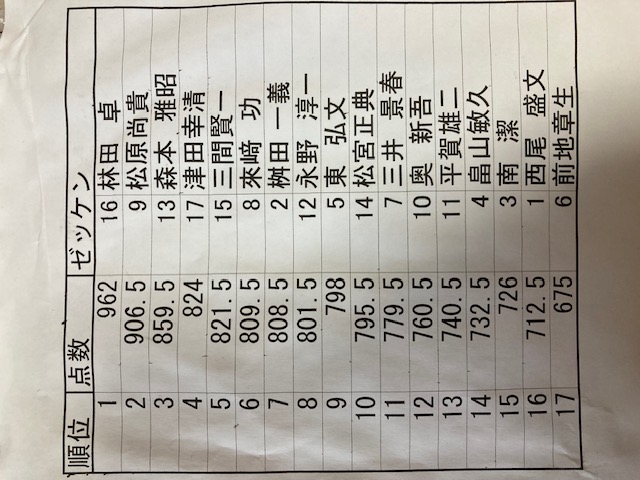 順位 点数 ゼッケン
1 962 16 林田 卓
2 906.5 9 松原尚貴
3 859.5 13 森本 雅昭
4 824 17 津田幸清
5 821.5 15 三間賢一
6 809.5 8 來﨑 功
7 808.5 2 桝田 一義
8 801.5 12 永野 淳一
9 798 5 東 弘文
10 795.5 14 松宮正典
11 779.5 7 三井 景春
12 760.5 10 奥 新吾
13 740.5 11 平賀雄二
14 732.5 4 畠山敏久
15 726 3 南 潔
16 712.5 1 西尾 盛文
17 675 6 前地章生